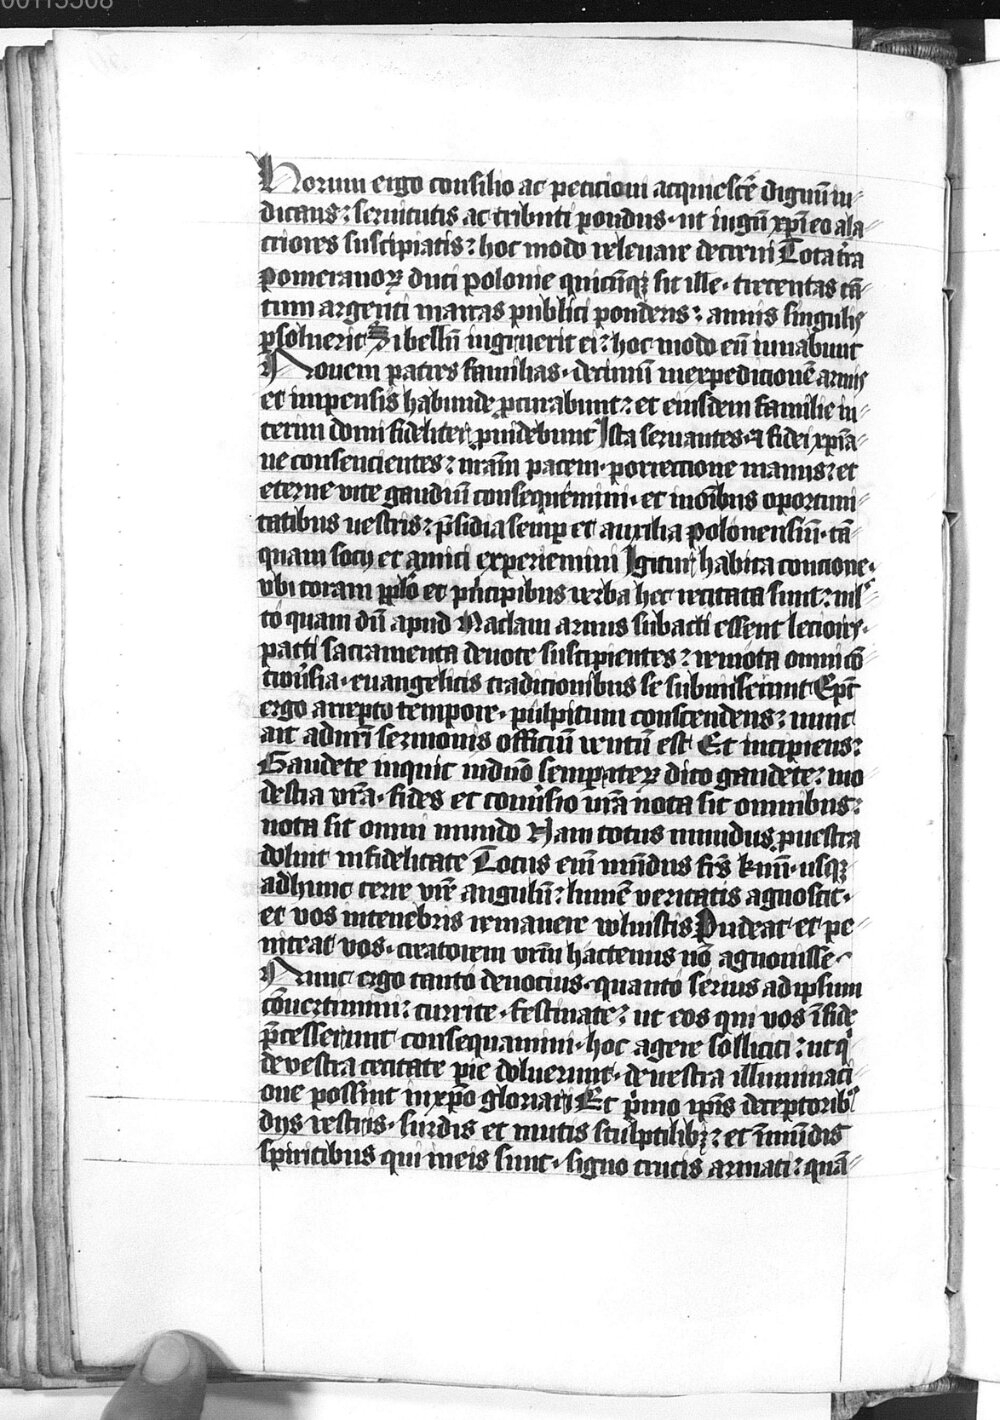 00113508
Horum ergo consilio ac peticioni acquiescē dignū iu-
dicans: seruitutis ac tributi pondus· ut iugū xp̄i eo ala
criores suscipiatis: hoc modo releuare decreui Tota t̄ra
pomeranoꝝ duci polonie quicūqꝫ sit ille· trecentas tā
tum argenti marcas publici ponderis: annis singulis
ꝑsoluerit Si bellū ingruerit ei: hoc modo eū iuuabunt
Nouem patres familias· decimū in expedicionē armis
et inpensis habunde ꝓcurabunt: et eiusdem familie in-
terim domi fideliter ꝓuidebunt Ista seruantes· ⁊ fidei xp̄ia-
ne consencientes: nr̄am pacem· porrectione manus: et
eterne vite gaudiū consequemini· et in oībus oportuni
tatibus uestris: p̄sidia semꝑ et auxilia polonensiū· tā
quam socij et amici experiemini Igitur habita concione·
vbi coram pplo et pͥncipibus verba hec recitata sunt: ml̓
to quam dū apud Naclam armis subacti essent leciores·
pacti sacramenta deuote suscipientes: remota omni cō
trouͥsia· euangelicis tradicionibus se submiserunt Ep̄c
ergo accepto tempore· pulpitum conscendens: nunc
ait ad nr̄i sermonis officiū ventū est Et incipiens:
Gaudete inquit in dn̄o semper iteꝝ dico gaudete: mo
destia vr̄a· fides et conuͥsio vr̄a nota sit omnibus:
nota sit omni mundo Nam totus mundus ꝓ uestra
doluit infidelitate Totus enī mūdus fr̄s kmī· usqꝫ
ad hunc terre vr̄e angulū: lumē veritatis agnoscit·
et vos in tenebris remanere voluistis Pudeat et pe
niteat vos· creatorem vr̄m hactenus nō agnouisse·
Nunc ergo tanto deuocius· quanto serius ad ipsum
cōuertimini: currite· festinate: ut eos qui vos ī fide
p̄cesserunt consequamini· hoc agere solliciti: ut qͥ
de vestra cecitate pie doluerunt· de uestra illuminaci
one possint in xp̄o gloriari Et pͥmo ip̄is deceptoribꝰ
dijs vestris· surdis et mutis sculptilibꝫ: et īmūdis
spiritibus qui in eis sunt· signo crucis armati: quā